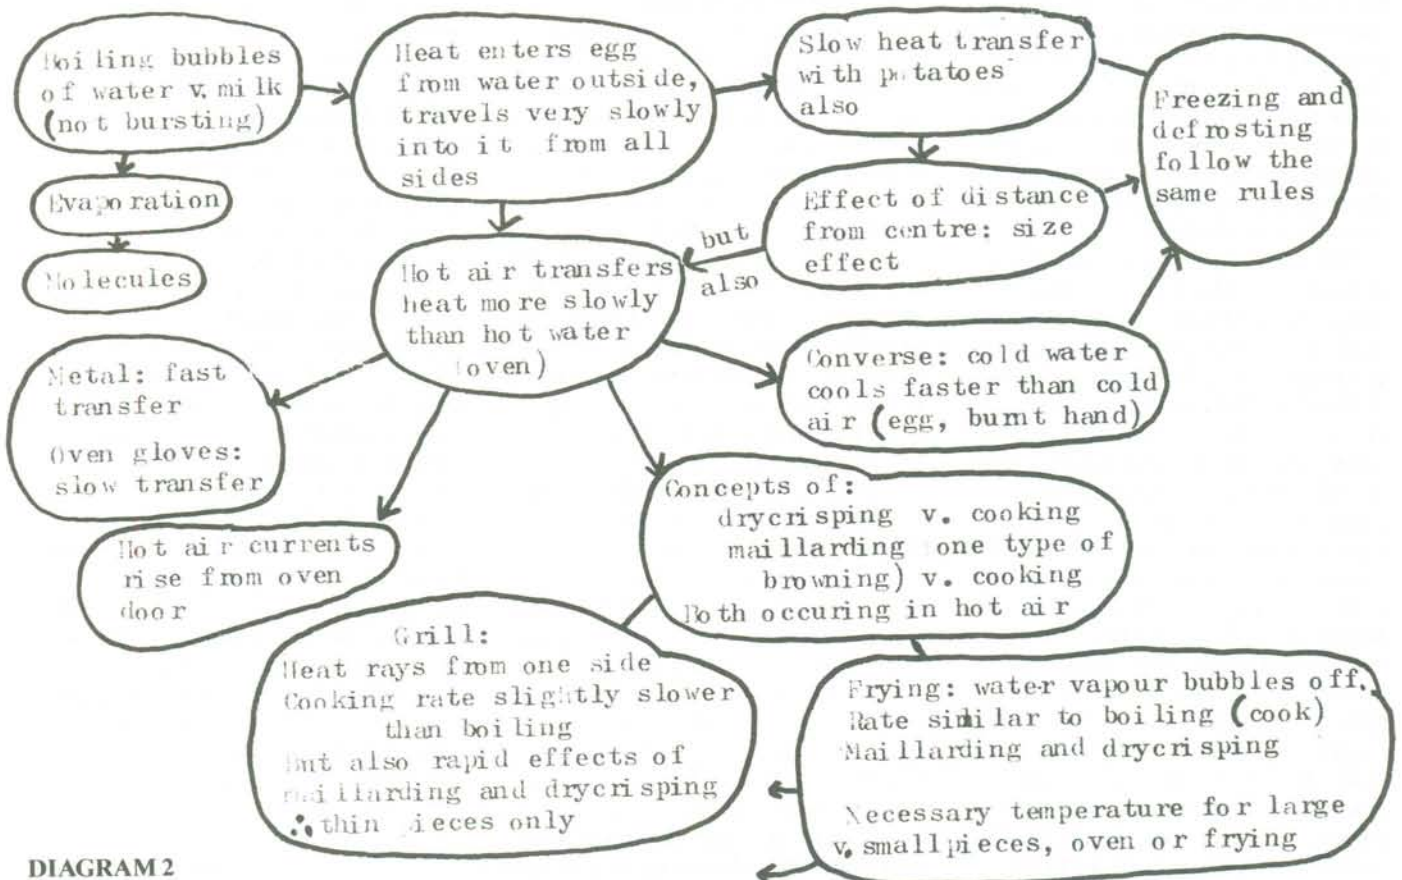 Boiling bubbles
of water v. milk
(not bursting)
Evaporation
Molecules
Heat enters egg
from water outside,
travels very slowly
into it from all
sides
Slow heat transfer
with potatoes
also
Freezing and
defrosting
follow the
same rules
Effect of distance
from centre: size
effect
but
also
Hot air transfers
heat more slowly
than hot water
oven)
Converse: cold water
cools faster than cold
air (egg, burnt hand)
Metal: fast
transfer
Oven gloves:
slow transfer
Hot air currents
rise from oven
door
Concepts of:
drycrisping v. cooking
maillarding one type of
browning) v. cooking
Both occuring in hot air
Grill:
Heat rays from one side
Cooking rate slightly slower
than boiling
But also rapid effects of
maillarding and drycrisping
∴ thin pieces only
Frying: water vapour bubbles off.
Rate similar to boiling (cook)
Maillarding and drycrisping
Necessary temperature for large
v. small pieces, oven or frying
DIAGRAM 2